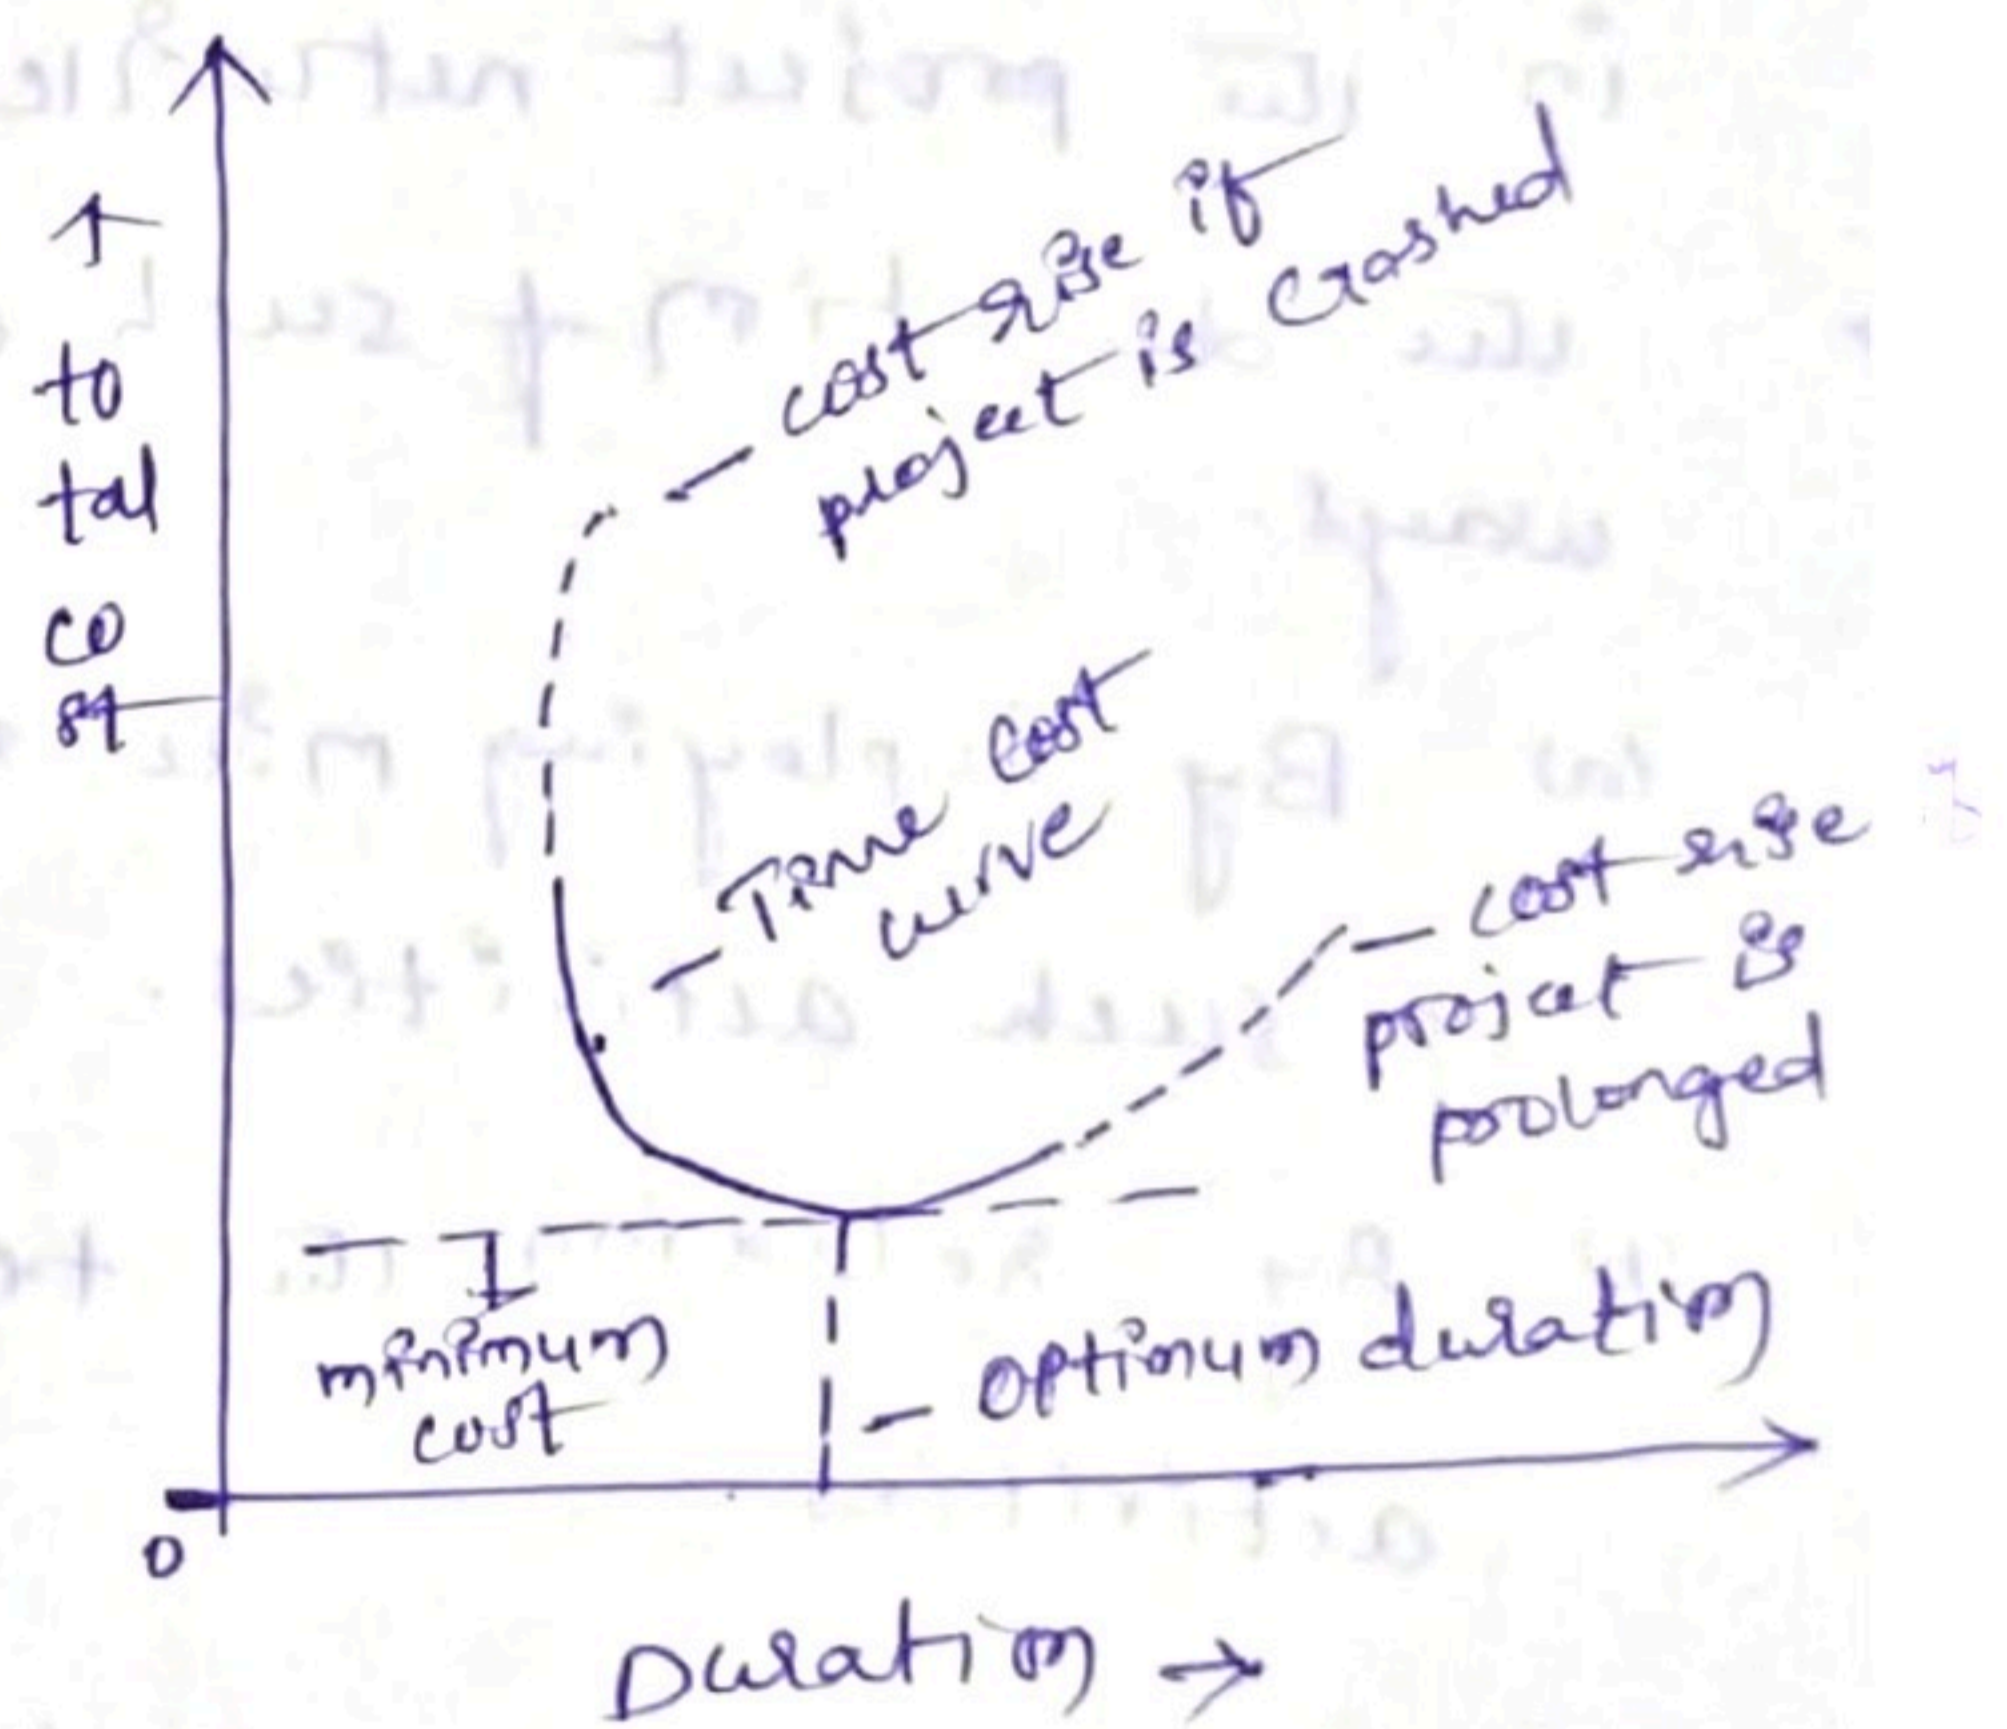 ↑
to
tal
co
st
cost rise if
project is crashed
Time cost
curve
cost rise
project is
prolonged
minimum
cost
optimum duration
0
Duration →